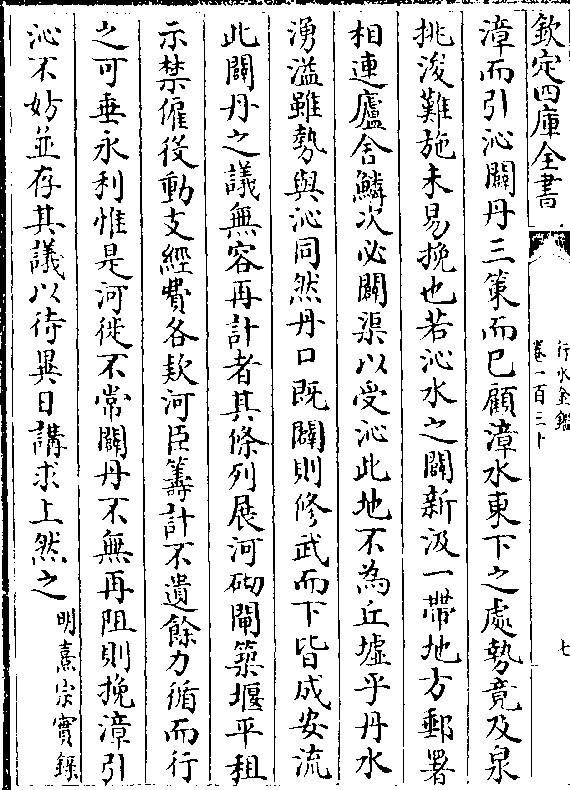 欽定四庫全書
行水金鑑
卷一百三十
七
漳而引沁闢丹三策而已顧漳水東下之處勢竟及泉
挑浚難施未易挽也若沁水之闢新汲一帶地方郵署
相連廬舍鱗次必闢渠以受沁此地不為丘墟乎丹水
湧溢雖勢與沁同然丹口既闢則修武而下皆成安流
此闢丹之議無容再計者其條列展河砌閘築堰平租
示禁僱役動支經費各欵河臣籌計不遺餘力循而行
之可垂永利惟是河徙不常闢丹不無再阻則挽漳引
沁不妨並存其議以待異日講求上然之明熹宗實錄